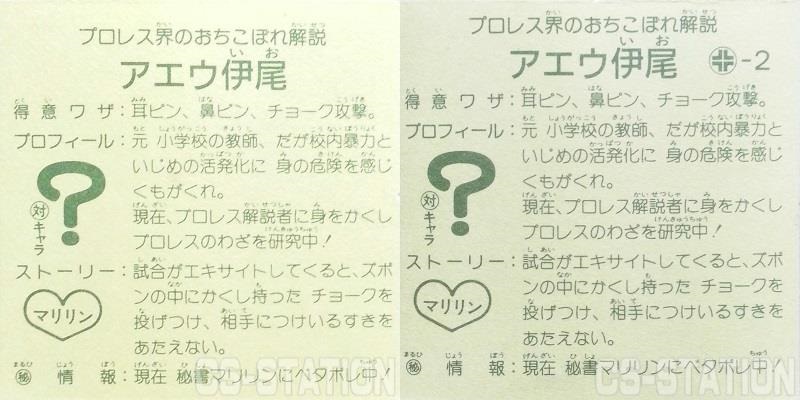 プロレス界のおちこぼれ解説
アエウ伊尾
得意ワザ：耳ピン、鼻ピン、チョーク攻撃。
プロフィール：元 小学校の教師、だが校内暴力と
いじめの活発化に 身の危険を感じ
くもがくれ。
現在、プロレス解説者に身をかくし
プロレスのわざを研究中！
?
対キャラ
ストーリー：試合がエキサイトしてくると、ズボ
ンの中にかくし持った チョークを
投げつけ、相手につけいるすきを
あたえない。
マリリン
㊙情報：現在 秘書マリリンにベタボレ中！
プロレス界のおちこぼれ解説
アエウ伊尾 -2
得意ワザ：耳ピン、鼻ピン、チョーク攻撃。
プロフィール：元 小学校の教師、だが校内暴力と
いじめの活発化に 身の危険を感じ
くもがくれ。
現在、プロレス解説者に身をかくし
プロレスのわざを研究中！
?
対キャラ
ストーリー：試合がエキサイトしてくると、ズボ
ンの中にかくし持った チョークを
投げつけ、相手につけいるすきを
あたえない。
マリリン
㊙情報：現在 秘書マリリンにベタボレ中！
CS-STATION
CS-STATION